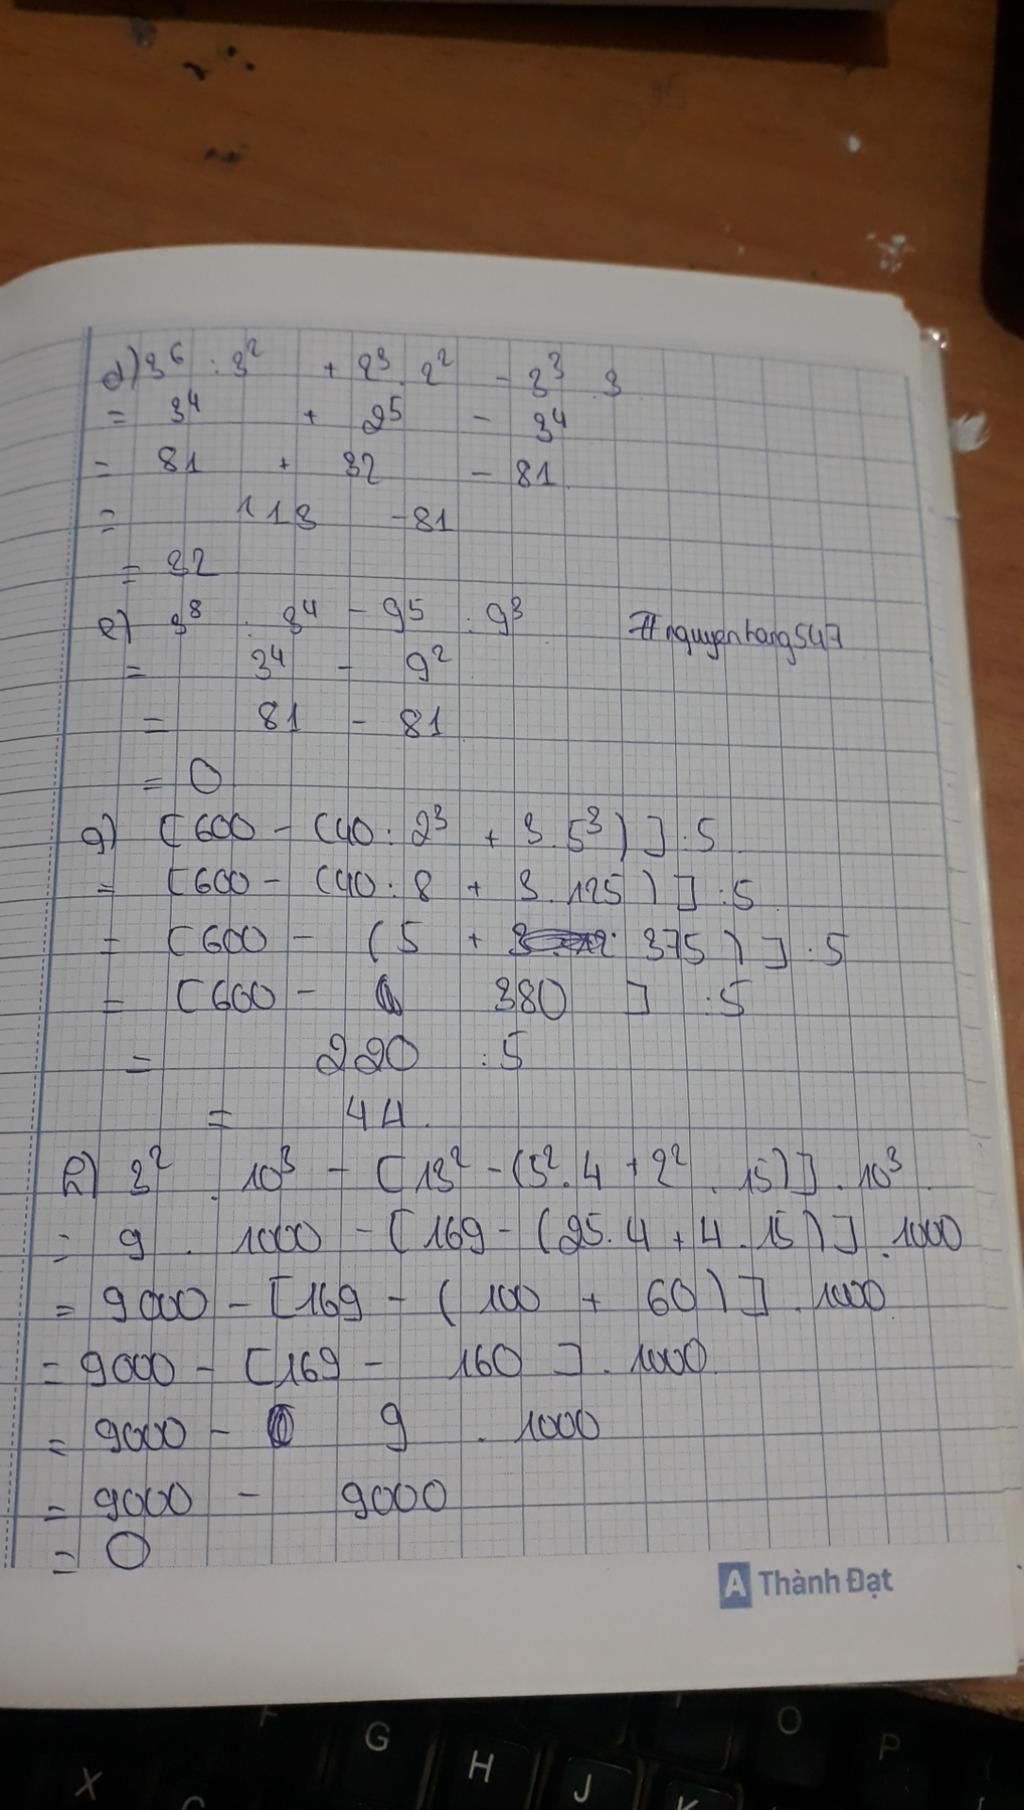 d) 3⁶ : 3² + 2³ . 2² - 3³ . 3
= 3⁴ + 2⁵ - 3⁴
= 81 + 32 - 81
= 113 - 81
= 32
e) 3⁸ : 3⁴ - 9⁵ : 9³
#nguyenhang547
= 3⁴ - 9²
= 81 - 81
= 0
g) [600 - (40 : 2³ + 3 . 5³)] : 5
= [600 - (40 : 8 + 3 . 125)] : 5
= [600 - (5 + 375)] : 5
= [600 - 380] : 5
= 220 : 5
= 44.
h) 3² . 10³ - [13² - (5² . 4 + 2² . 15)] . 10³
= 9 . 1000 - [169 - (25 . 4 + 4 . 15)] . 1000
= 9000 - [169 - (100 + 60)] . 1000
= 9000 - [169 - 160] . 1000
= 9000 - 9 . 1000
= 9000 - 9000
= 0
A Thành Đạt
F
G
O
P
X
H
J
K